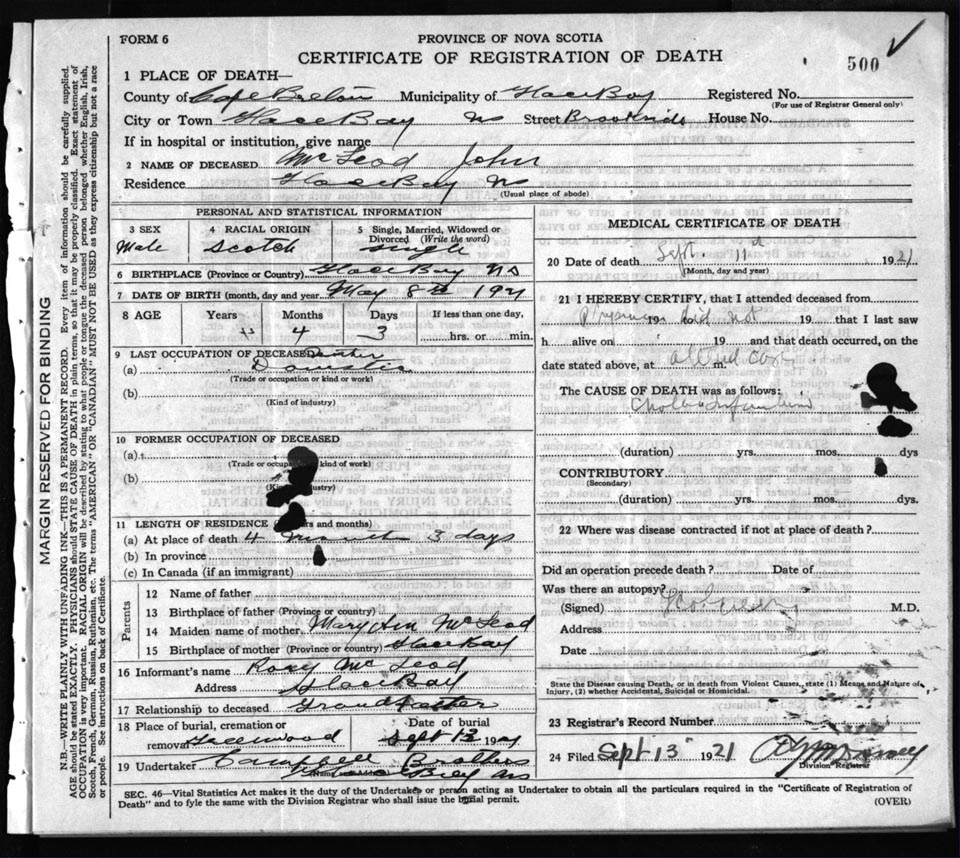 FORM 6
PROVINCE OF NOVA SCOTIA
CERTIFICATE OF REGISTRATION OF DEATH
500
MARGIN RESERVED FOR BINDING
N.B.—WRITE PLAINLY WITH UNFADING INK—THIS IS A PERMANENT RECORD. Every item of information should be carefully supplied.
AGE should be stated EXACTLY. PHYSICIANS should STATE CAUSE OF DEATH in plain terms, so that it may be properly classified. Exact statement of
OCCUPATION is very important. RACIAL ORIGIN will be described by stating to what people or tongue the deceased person belonged whether English, Irish,
Scotch, French, German, Russian, Ruthenian, etc. The terms "AMERICAN" OR "CANADIAN" MUST NOT BE USED as they express citizenship but not a race
or people. See instructions on back of Certificate.
1 PLACE OF DEATH—
County of Cape Breton Municipality of Glace Bay Registered No.
(For use of Registrar General only)
City or Town Glace Bay NS Street Brookside House No.
If in hospital or institution, give name
2 NAME OF DECEASED McLeod John
Residence Glace Bay NS
(Usual place of abode)
PERSONAL AND STATISTICAL INFORMATION
3 SEX 4 RACIAL ORIGIN 5 Single, Married, Widowed or
Divorced (Write the word)
Male Scotch Single
6 BIRTHPLACE (Province or Country) Glace Bay NS
7 DATE OF BIRTH (month, day and year) May 8th 1921
8 AGE Years Months Days If less than one day,
4 3 hrs. or min.
9 LAST OCCUPATION OF DECEASED
(a)
(Trade or occupation or kind of work)
(b)
(Kind of industry)
10 FORMER OCCUPATION OF DECEASED
(a)
(Trade or occupation or kind of work)
(b)
(Kind of industry)
11 LENGTH OF RESIDENCE (years and months)
(a) At place of death 4 Months 3 days
(b) In province
(c) In Canada (if an immigrant)
Parents
12 Name of father
13 Birthplace of father (Province or country)
14 Maiden name of mother Mary Ann McLeod
15 Birthplace of mother (Province or country) Glace Bay
16 Informant's name Rory McLeod
Address Glace Bay
17 Relationship to deceased Grandfather
18 Place of burial, cremation or Date of burial
removal Greenwood Sept 13 1921
19 Undertaker Campbell Brothers
Glace Bay NS
MEDICAL CERTIFICATE OF DEATH
20 Date of death Sept. 11 1921
(Month, day and year)
21 I HEREBY CERTIFY, that I attended deceased from
Physician 19 did not 19 , that I last saw
h alive on 19 and that death occurred, on the
date stated above, at attend m.
The CAUSE OF DEATH was as follows:
Cholera Infantum
(duration) yrs. mos. dys
CONTRIBUTORY
(Secondary)
(duration) yrs. mos. dys.
22 Where was disease contracted if not at place of death?
Did an operation precede death? Date of
Was there an autopsy?
(Signed) M.D.
Address
Date
State the Disease causing Death, or in death from Violent Causes, state (1) Means and Nature of
Injury, (2) whether Accidental, Suicidal or Homicidal.
23 Registrar's Record Number
24 Filed Sept 13 1921
Division Registrar
SEC. 46—Vital Statistics Act makes it the duty of the Undertaker or person acting as Undertaker to obtain all the particulars required in the "Certificate of Registration of
Death" and to fyle the same with the Division Registrar who shall issue the burial permit.
(OVER)